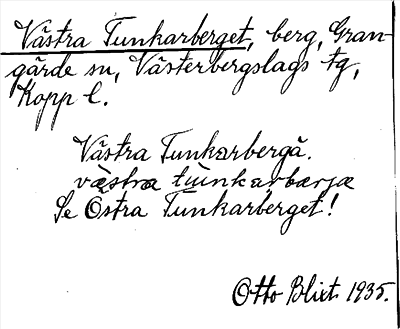 Västra Tunkarberget, berg, Gran-
gärde sn, Västerbergslags tg,
Kopp l.
Västra Tunkarbergä.
västra tùnkarbærjæ
Se Östra Tunkarberget!
Otto Blixt 1935.